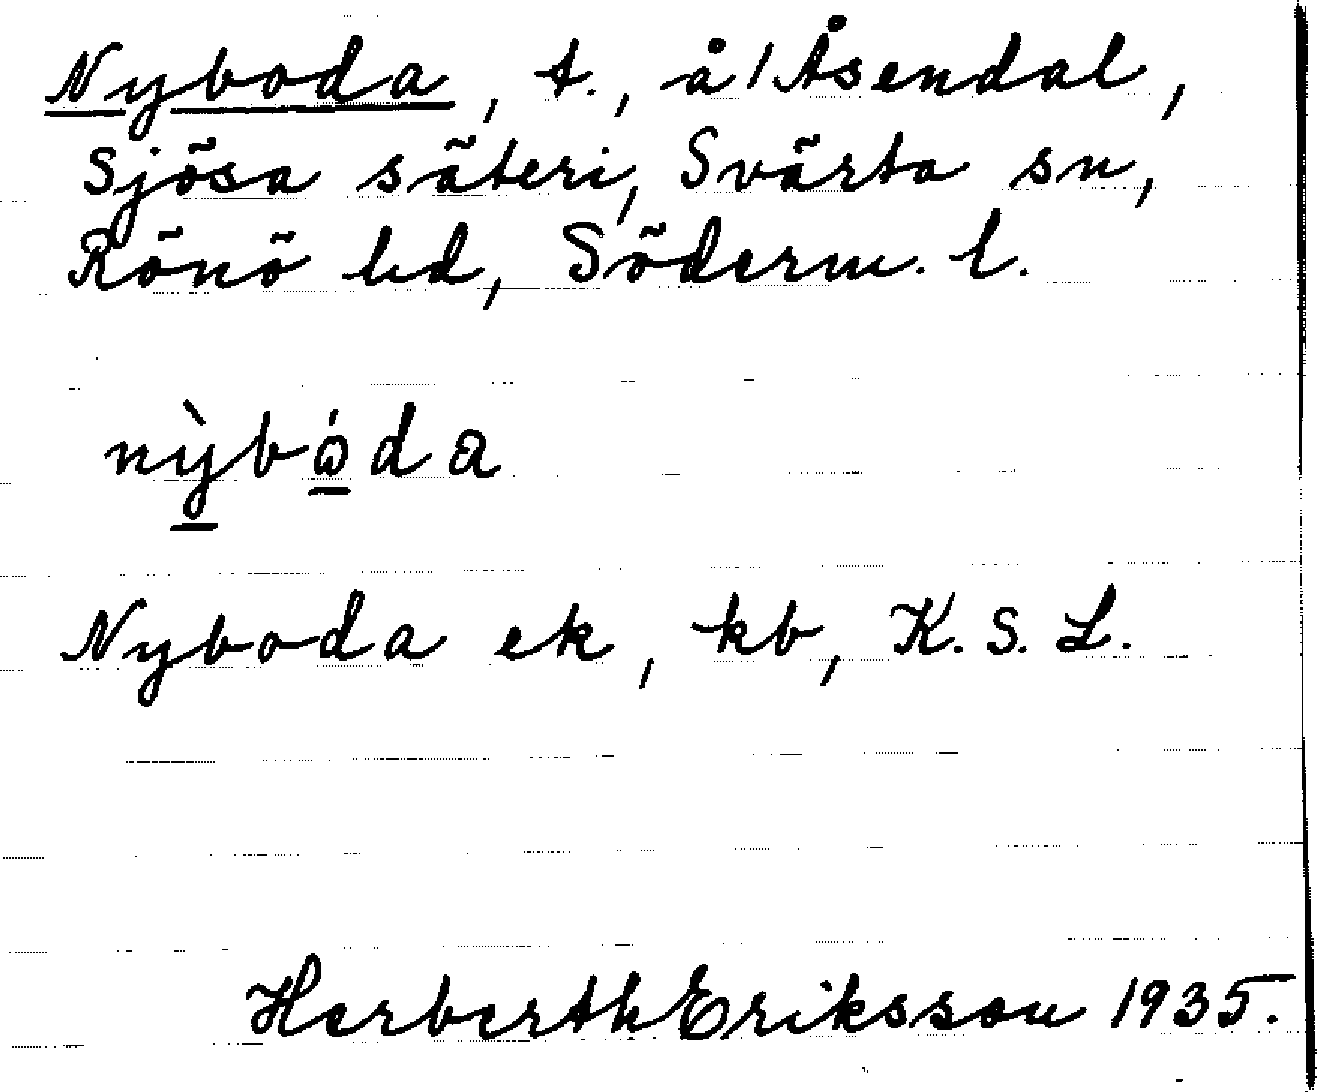 Nyboda, t., å 1 Åsendal,
Sjösa säteri, Svärta sn,
Rönö hd, Söderm. l.
nỳbɷ́da
Nyboda ek, kb, K. S. L.
Herberth Eriksson 1935.